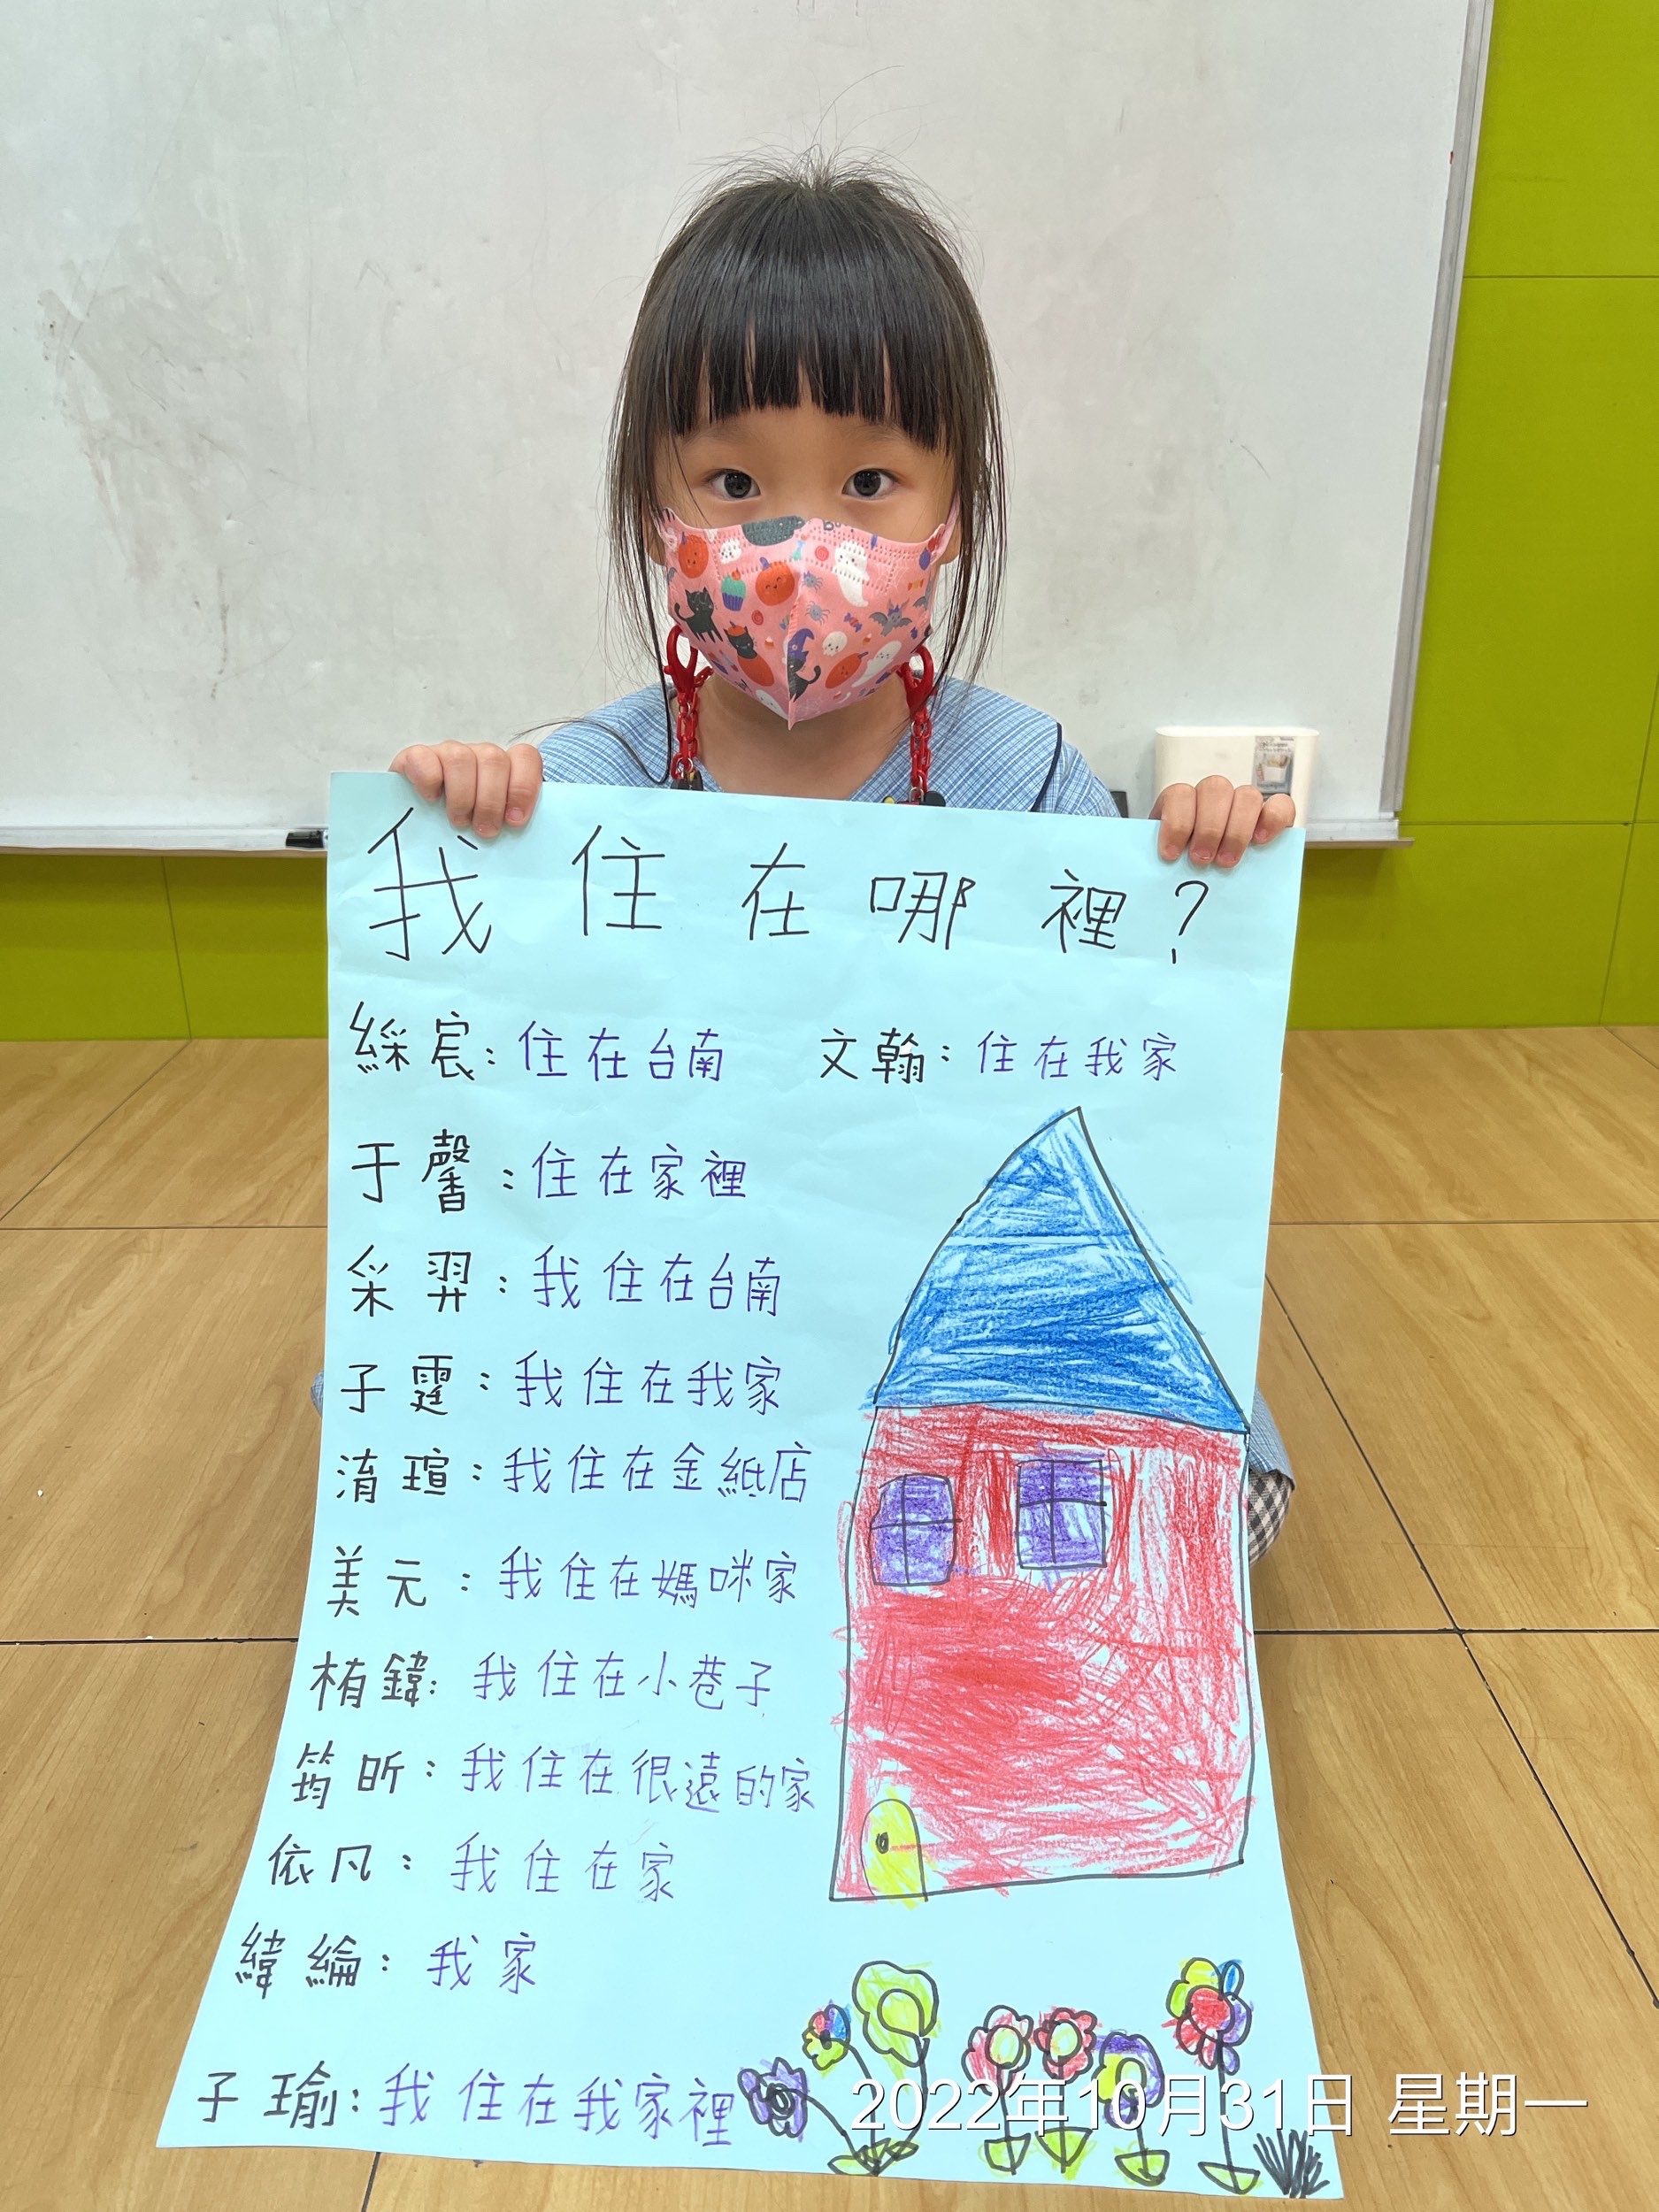 我住在哪裡？
綵宸：住在台南 文翰：住在我家
于馨：住在家裡
采羿：我住在台南
子霆：我住在我家
淯瑄：我住在金紙店
美元：我住在媽咪家
栯鍏：我住在小巷子
筠昕：我住在很遠的家
依凡：我住在家
緯綸：我家
子瑜：我住在我家裡
2022年10月31日 星期一